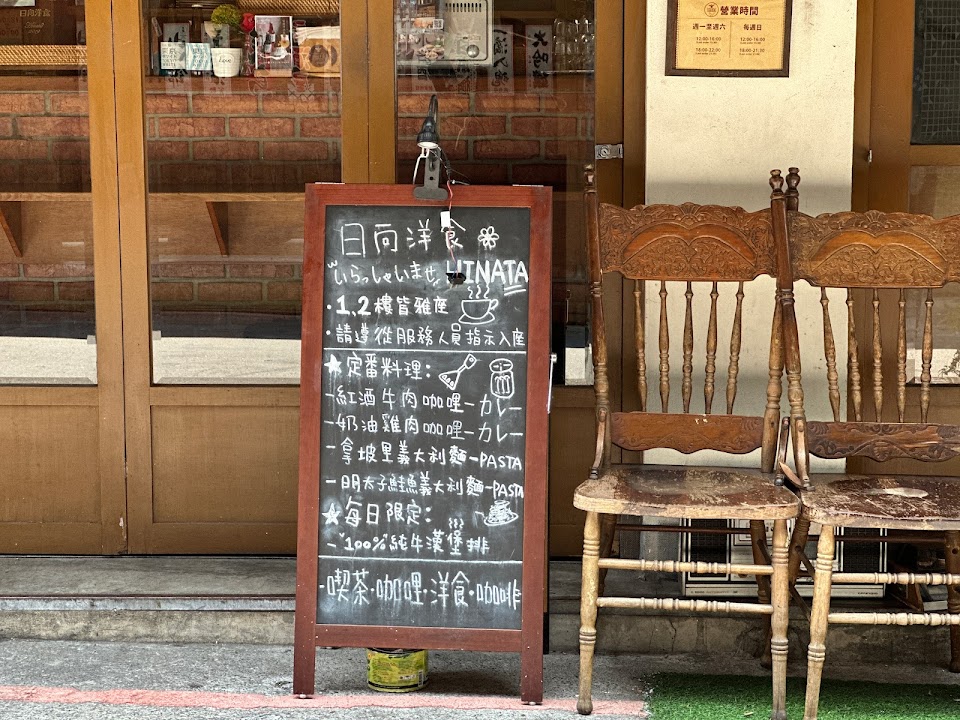 日向洋食
營業時間
週一至週六 每週日
12:00-16:00 12:00-16:00
18:00-22:00 18:00-21:30
日向洋食
"いらっしゃいませ," HINATA
·1,2樓皆雅座
·請遵從服務人員指示入座
★定番料理:
-紅酒牛肉咖哩-カレー
-奶油雞肉咖哩-カレー
-拿坡里義大利麵-PASTA
-明太子鮭魚義大利麵-PASTA
★每日限定:
-"100%純牛漢堡排
·喫茶·咖哩·洋食·咖啡